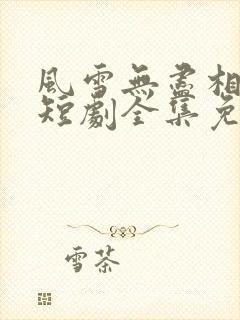 風雪無盡相
短劇全集免
雪茶